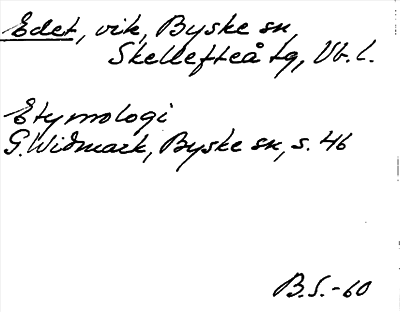 Edet, vik, Byske sn,
Skellefteå tg, Vb. l.
Etymologi
G. Widmark, Byske sn, s. 46
B.S.-60